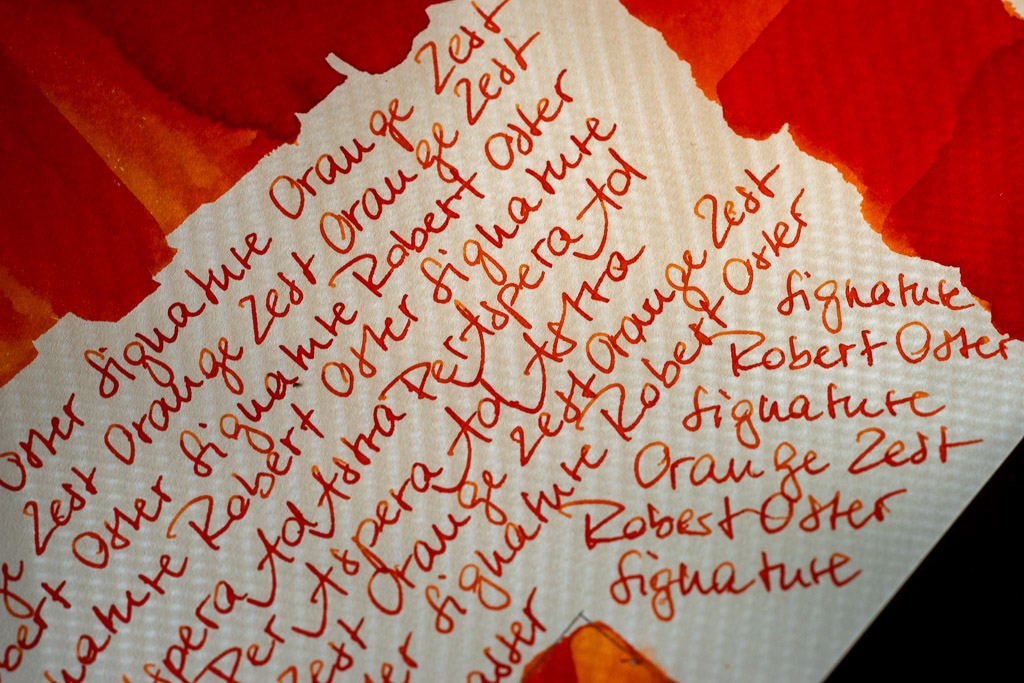 Oster Signature Orange Zest
ge Zest Orange Zest Orange Zest
bert Oster Signature Robert Oster
nature Robert Oster Signature
spera Ad Astra Per Aspera Ad
Per Aspera Ad Astra
Zest Orange Zest Orange Zest
er Signature Robert Oster
oster
Signature
Robert Oster
Signature
Orange Zest
Robert Oster
Signature